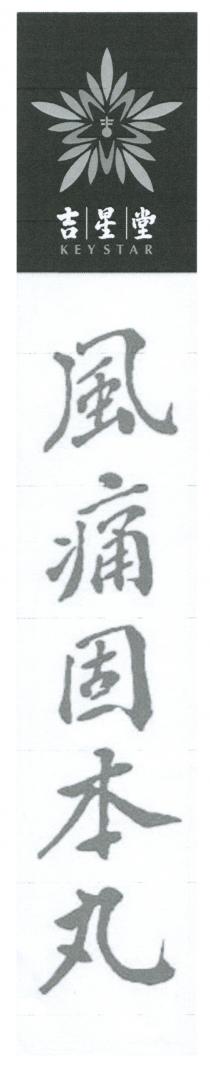 吉|星|堂
KEYSTAR
風痛固本丸